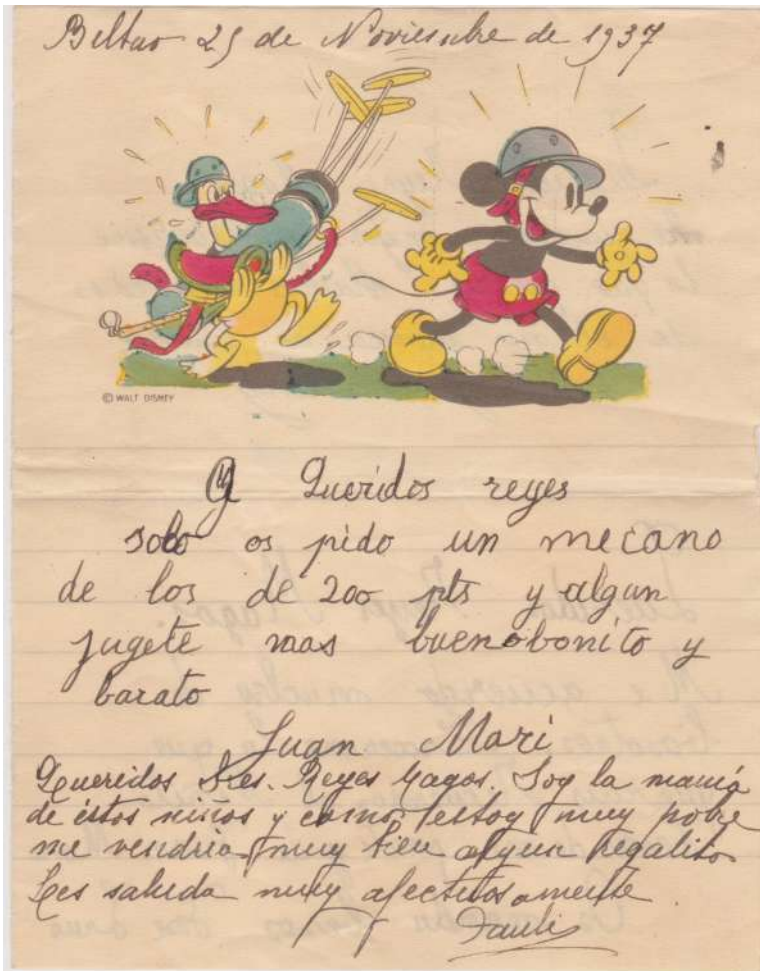 Bilbao 25 de Noviembre de 1937
© WALT DISNEY
Queridos reyes
solo os pido un mecano
de los de 200 pts y algun
jugete mas bueno bonito y
barato
Juan Mari
Queridos Sres. Reyes Magos. Soy la mamá
de éstos niños y como estoy muy pobre
me vendria muy bien algun regalito
Les saluda muy afectuosamente
Pauli